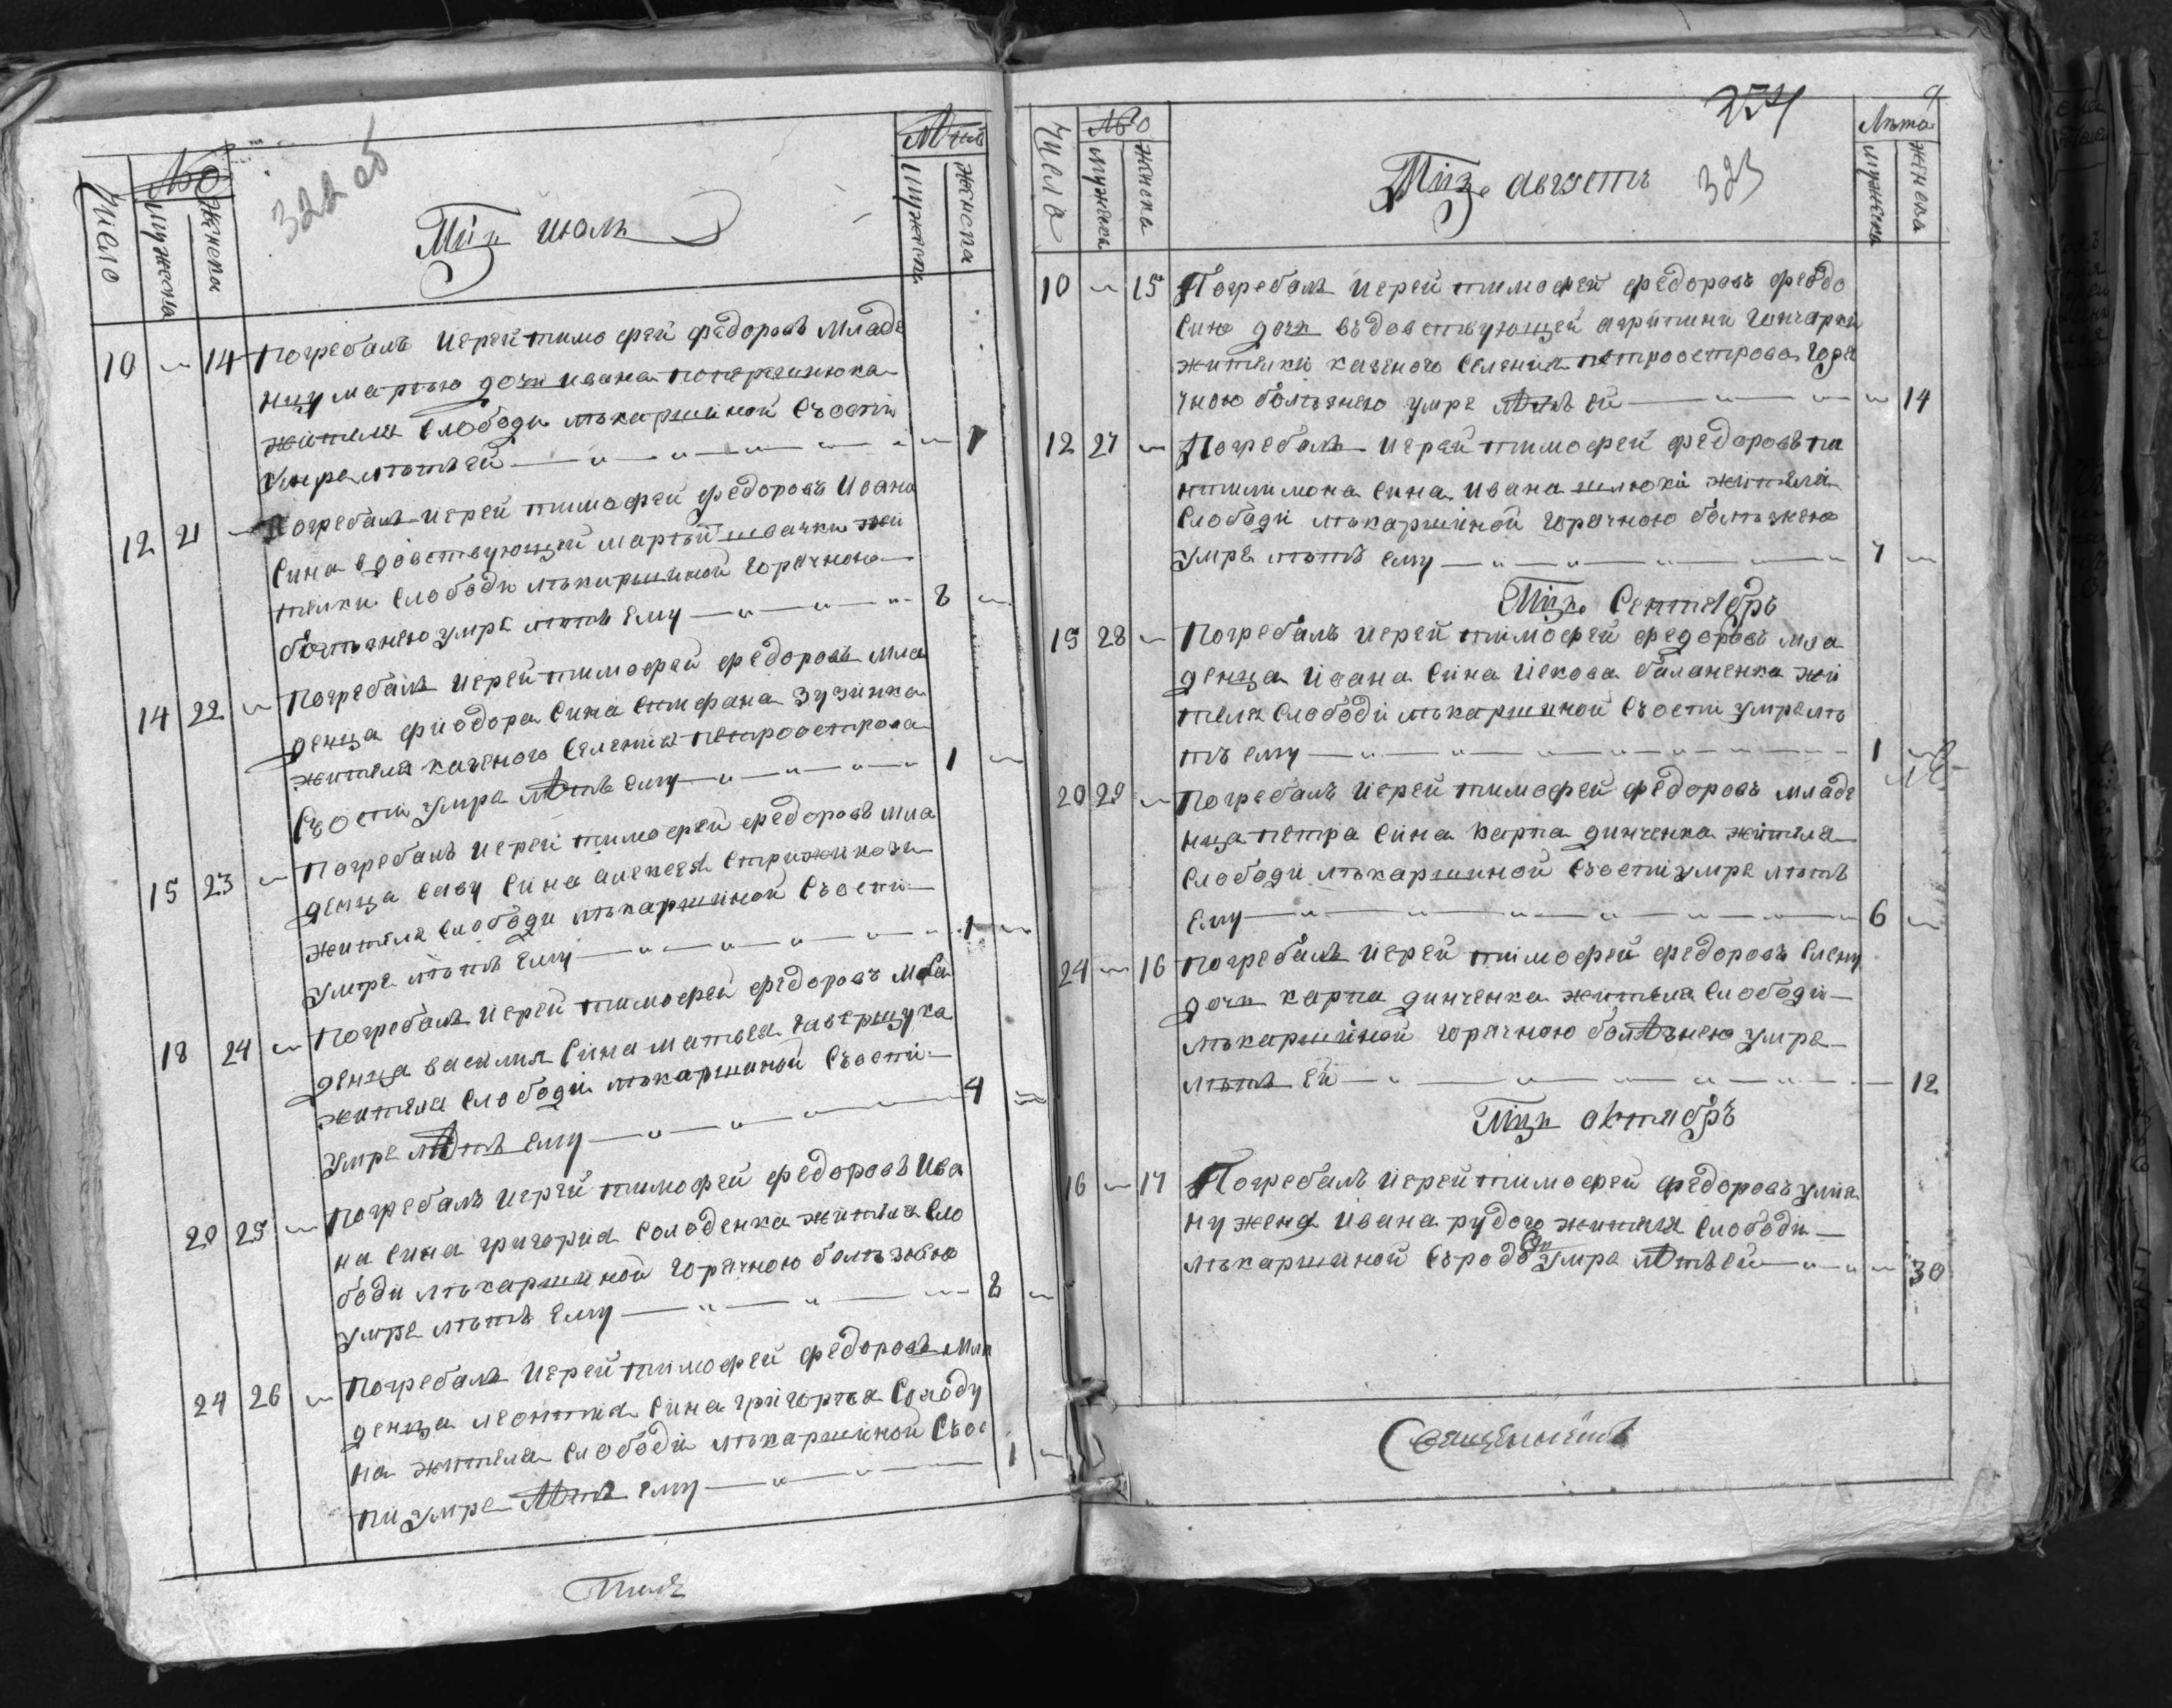 322 об
Число
№о
Мужеска
Женска
Мцъ июль
Лѣта
Мужеска
Женска
10 14 Погребалъ Иерей тимофей федоровъ младе
ницу марѳию дочь ивана
жителя слободи лѣкаршиной съоспи
умре лѣтъ ей 1
12 21 Погребалъ Иерей тимофей федоровъ Ивана
сина вдовствующей марѳии швачки жи
телки слободи лѣкаршиной горачною
болѣзнею умре лѣтъ ему 8
14 22 Погребалъ Иерей тимофей федоровъ мла
денца фиодора сина стефана зузинка
жителя казеного селения петроострова
съоспи умре лѣтъ ему 1
15 23 Погребалъ Иерей тимофей федоровъ мла
денца саву сина алексея
жителя слободи лѣкаршиной съоспи
умре лѣтъ ему 1
18 24 Погребалъ Иерей тимофей федоровъ мла
денца василия сина матвея
жителя слободи лѣкаршиной съоспи
умре лѣтъ ему 4
20 25 Погребалъ Иерей тимофей федоровъ Ива
на сина григория солоденка жителя сло
боди лѣкаршиной горячною болѣзнею
умре лѣтъ ему 8
24 26 Погребалъ Иерей тимофей федоровъ мла
денца леонтия сина григорья солоду
на жителя слободи лѣкаршиной съос
пи умре лѣтъ ему 1
234
323
Числа
№о
Мужеска
Женска
Мцъ августъ
Лѣта
Мужеска
Женска
10 15 Погребалъ Иерей тимофей федоровъ феодо
сию дочь въдовствующей агрипини гончарки
жителки казеного селения петроострова горя
чною болѣзнею умре лѣтъ ей 14
12 27 Погребалъ Иерей тимофей федоровъ па
нтилимона сина ивана шлюхи жителя
слободи лѣкаршиной горячною болѣзнею
умре лѣтъ ему 7
Мцъ Сентябръ
15 28 Погребалъ Иерей тимофей федоровъ мла
денца ивана сина иякова баланенка жи
теля слободи лѣкаршиной съоспи умре лѣ
тъ ему 1
20 29 Погребалъ Иерей тимофей федоровъ младе
нца петра сина карпа динченка жителя
слободи лѣкаршиной съоспи умре лѣтъ
ему 6
24 16 Погребалъ Иерей тимофей федоровъ елену
дочь карпа динченка жителя слободи
лѣкаршиной горячною болѣзнею умре
лѣтъ ей 12
Мцъ октябръ
16 17 Погребалъ Иерей тимофей федоровъ улия
ну жена ивана рудого жителя слободи
лѣкаршиной съродовъ умре лѣтъ ей 30